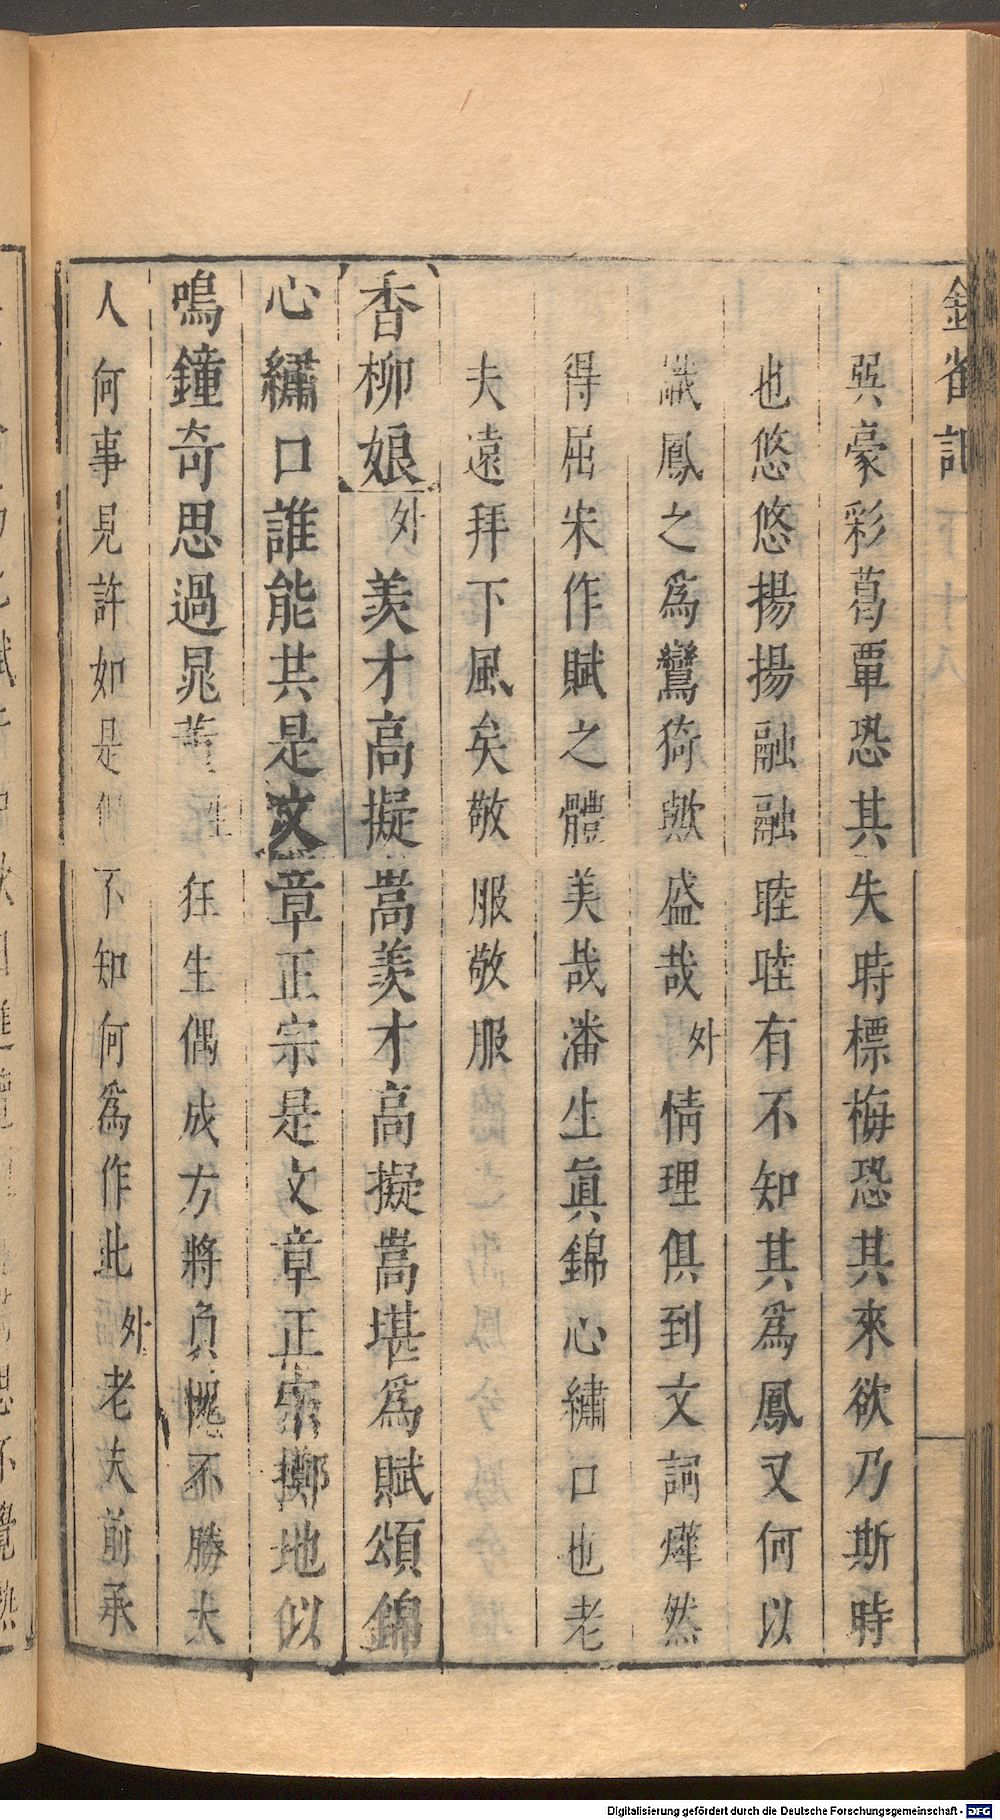 金雀記
與豪彩葛覃恐其失時標梅恐其來欲乃斯時
也悠悠揚揚融融睦睦有不知其為鳳又何以
識鳳之為鸞猗歟盛哉外情理俱到文詞燁然
得屈宋作賦之體美哉潘生眞錦心繡口也老
夫遠拜下風矣敬服敬服
香柳娘外羨才高擬嵩羨才高擬嵩堪為賦頌錦
心繡口誰能共是文章正宗是文章正宗擲地似
鳴鐘奇思過晁董生狂生偶成方將負愧不勝大
人何事見許如是但不知何為作此外老夫前承
Digitalisierung gefördert durch die Deutsche Forschungsgemeinschaft - DFG